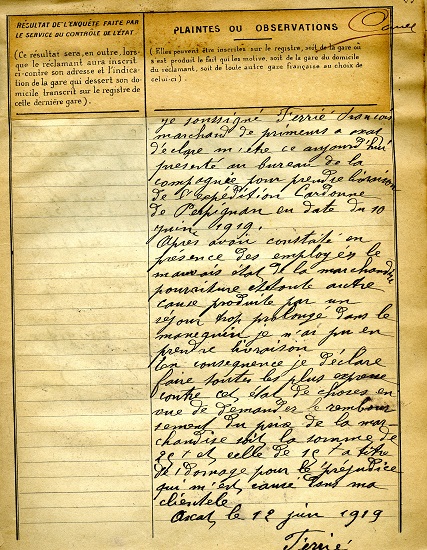 RÉSULTAT DE L'ENQUÊTE FAITE PAR
LE SERVICE DU CONTRÔLE DE L'ÉTAT
(Ce résultat sera, en outre, lors-
que le réclamant aura inscrit
ci-contre son adresse et l'indica-
tion de la gare qui dessert son do-
micile transcrit sur le registre de
cette dernière gare).
PLAINTES OU OBSERVATIONS
(Elles peuvent être inscrites sur le registre, soit de la gare où
s'est produit le fait qui les motive, soit de la gare du domicile
du réclamant, soit de toute autre gare française au choix de
celui-ci.)
je soussigné Terrié François
marchand de primeurs a
déclare m'être ce aujourd'hui
presenté au bureau de la
compagnée pour prendre livraison
de l'expédition Cardonne
de Perpignan en date du 10
juin 1919.
Apres avoir constaté en
présence des employés le
mauvais état de la marchandise
pourriture et toute autre
cause produite par un
séjour trop prolongé dans le
je n'ai pu en
prendre livraison
En consequence je déclare
faire toutes les plus expresse
contre cet état de choses en
vue de demander le rembour
sement du prix de la mar-
chandise soit la somme de
et celle de à titre
de domage pour le préjudice
qui m'est causé dans ma
clientele
le 12 juin 1919
Terrié